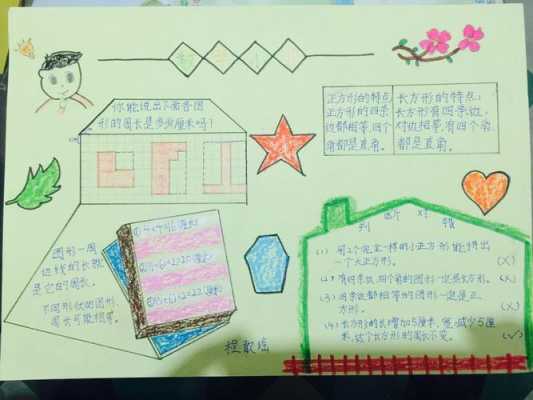 数学小报
你能说出下面各图
形的周长是多少厘米吗?
正方形的特点
正方形的四条
边都相等,四个
角都是直角。
长方形的特点:
长方形有四条边,
对边相等,有四个角
都是直角。
图形一周
边线的长就
是它的周长。
不同形状的图形,
周长可能相等。
①4×4=16(厘米)
判 断 对 错
(1) 用2个完全一样的小正方形能拼出
一个大正方形。 (×)
(2) 有四条边,四个角的图形一定是长方形。 (×)
(3) 四条边都相等的图形一定是正
方形。 (×)
(4) 长方形的长增加5厘米,宽减少5厘
米,这个长方形的周长不变。 (√)